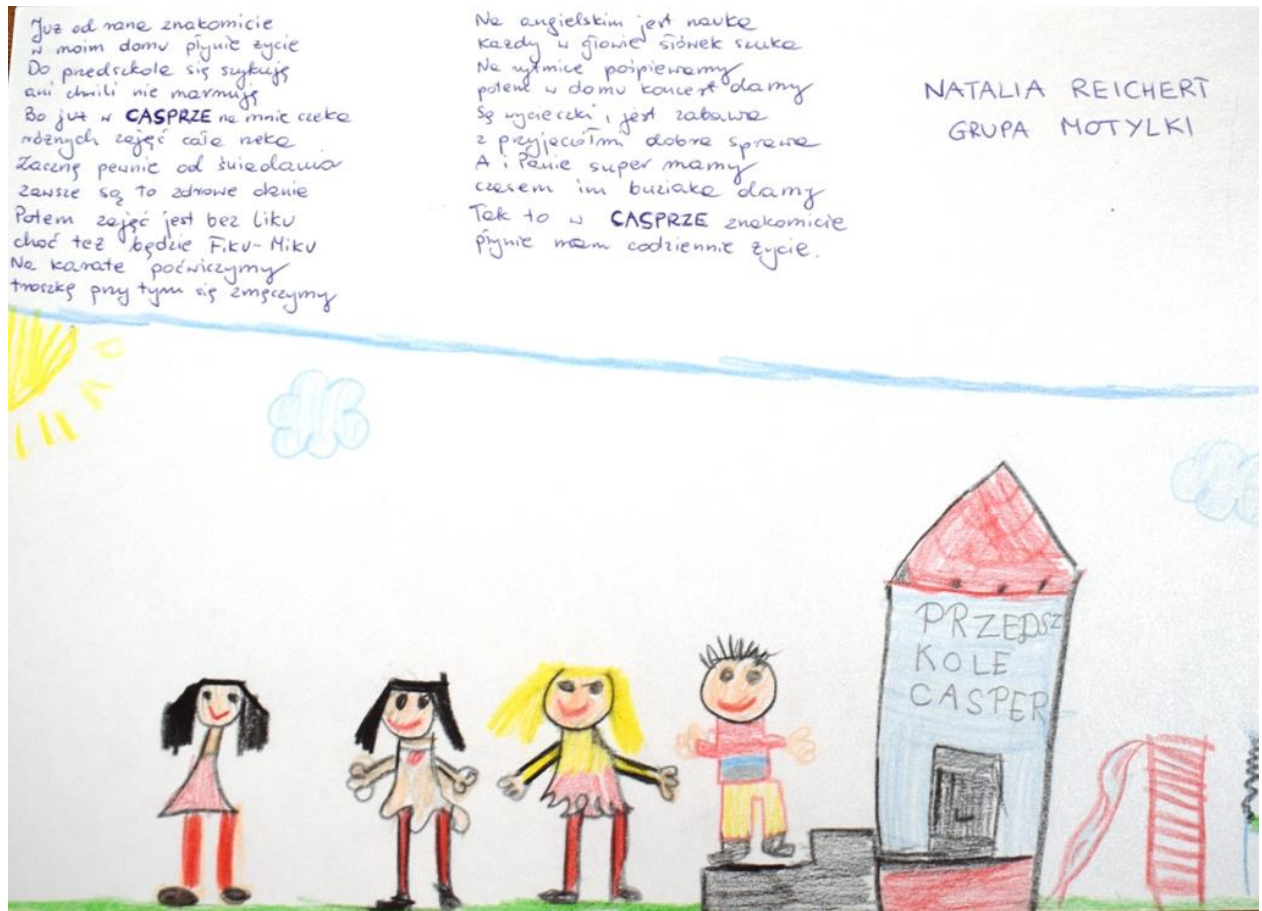 Już od rana znakomicie
w moim domu płynie życie
Do przedszkola się szykuję
ani chwili nie marnuję
Bo już w CASPRZE na mnie czeka
różnych zajęć cała rzeka
Zacznę pewnie od śniadania
zawsze są to zdrowe dania
Potem zajęć jest bez liku
choć też będzie Fiku-Miku
Na karate poćwiczymy
troszkę przy tym się zmęczymy
Na angielskim jest nauka
każdy w głowie słówek szuka
Na rytmice pośpiewamy
potem w domu koncert damy
Są wycieczki i jest zabawa
z przyjaciółmi dobra sprawa
A i Panie super mamy
czasem im buziaka damy
Tak to w CASPRZE znakomicie
płynie nam codziennie życie.
NATALIA REICHERT
GRUPA MOTYLKI
PRZEDSZ
KOLE
CASPER